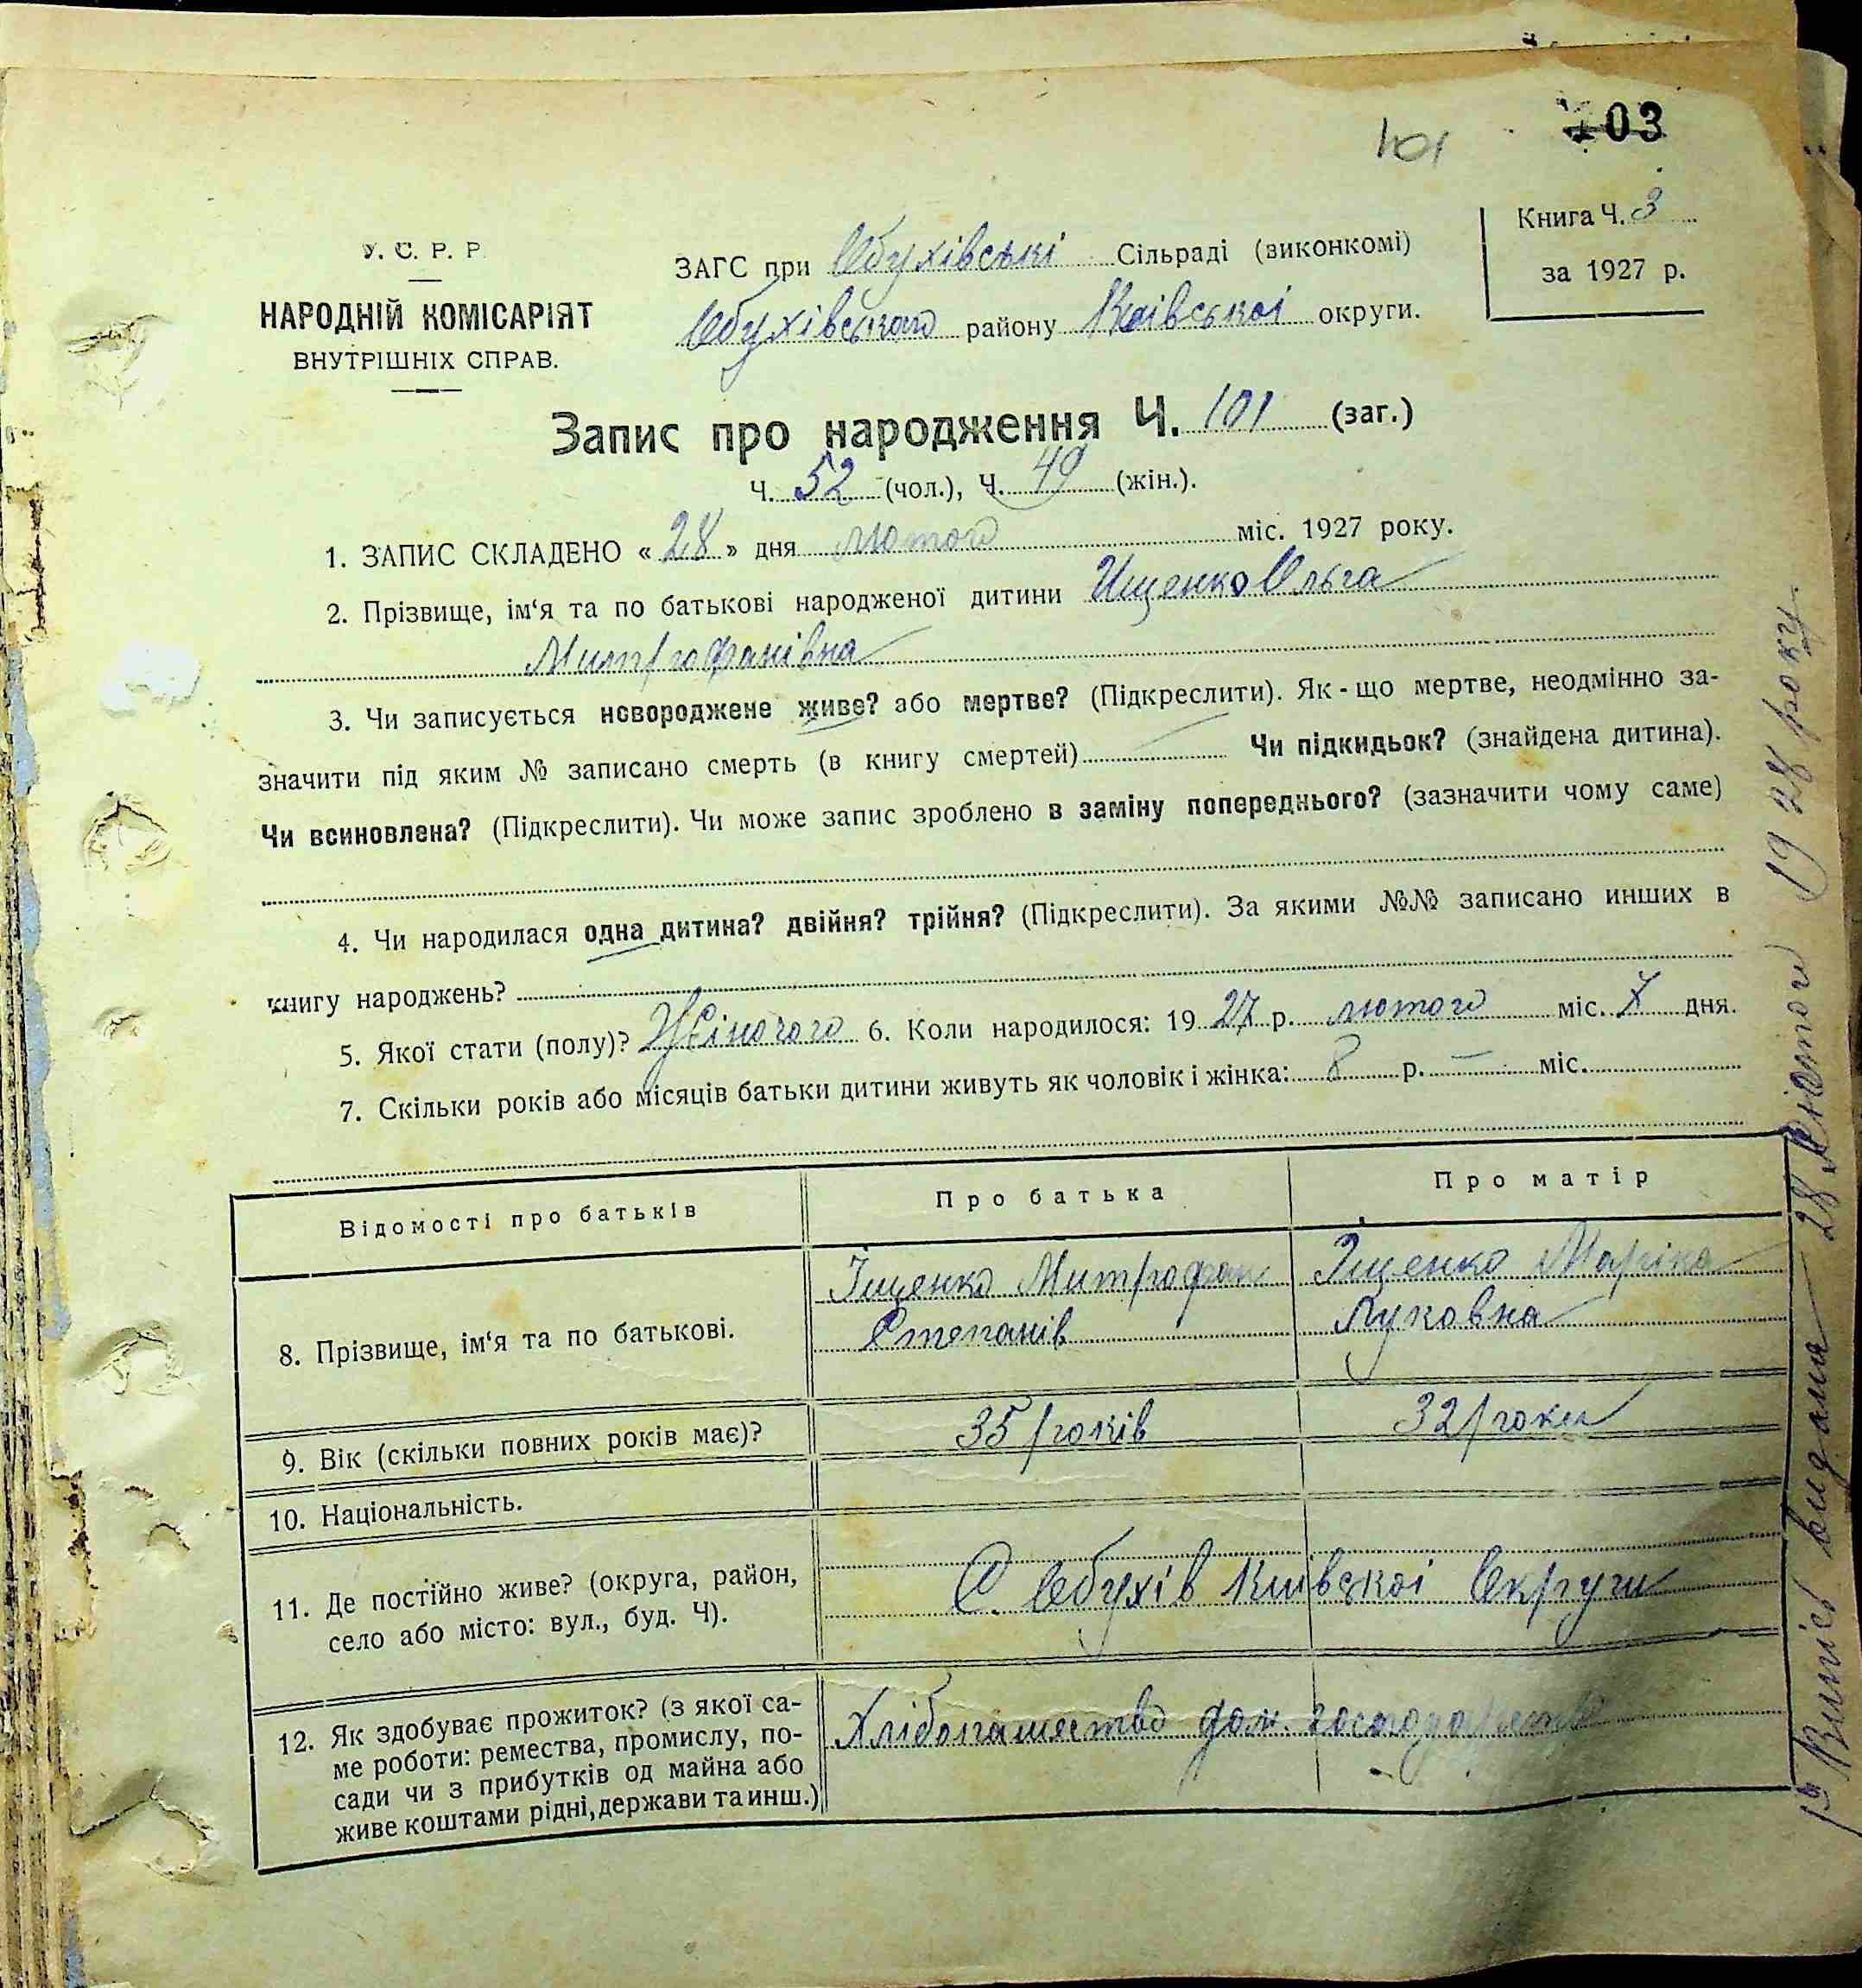 101
103
У. С. Р. Р.
НАРОДНІЙ КОМІСАРІЯТ
ВНУТРІШНІХ СПРАВ.
ЗАГС при Обухівські Сільраді (виконкомі)
Обухівського району Київської округи.
Книга Ч. 3
за 1927 р.
Запис про народження Ч. 101 (заг.)
Ч. 52 (чол.), Ч. 49 (жін.).
1. ЗАПИС СКЛАДЕНО «28» дня лютого міс. 1927 року.
2. Прізвище, ім‘я та по батькові народженої дитини Ищенко Ольга
Митрофанівна
3. Чи записується новороджене живе? або мертве? (Підкреслити). Як-що мертве, неодмінно за-
значити під яким № записано смерть (в книгу смертей) Чи підкидьок? (знайдена дитина).
Чи всиновлена? (Підкреслити). Чи може запис зроблено в заміну попереднього? (зазначити чому саме)
4. Чи народилася одна дитина? двійня? трійня? (Підкреслити). За якими №№ записано инших в
книгу народжень?
5. Якої стати (полу)? Жіночого 6. Коли народилося: 1927 р. лютого міс. 7 дня.
7. Скільки років або місяців батьки дитини живуть як чоловік і жінка: 8 р. — міс.
Відомості про батьків Про батька Про матір
8. Прізвище, ім‘я та по батькові.
Іщенко Митрофан
Степанів
Іщенко Маріна
Луковна
9. Вік (скільки повних років має)? 35 років 32 роки
10. Національність.
11. Де постійно живе? (округа, район,
село або місто: вул., буд. Ч).
С. Обухів Київскоі Округи
12. Як здобуває прожиток? (з якої са-
ме роботи: ремества, промислу, по-
сади чи з прибутків од майна або
живе коштами рідні, держави та инш.)
Хлібопашество дом. господарство
Випісь видана 28 Лютого 1928 року.